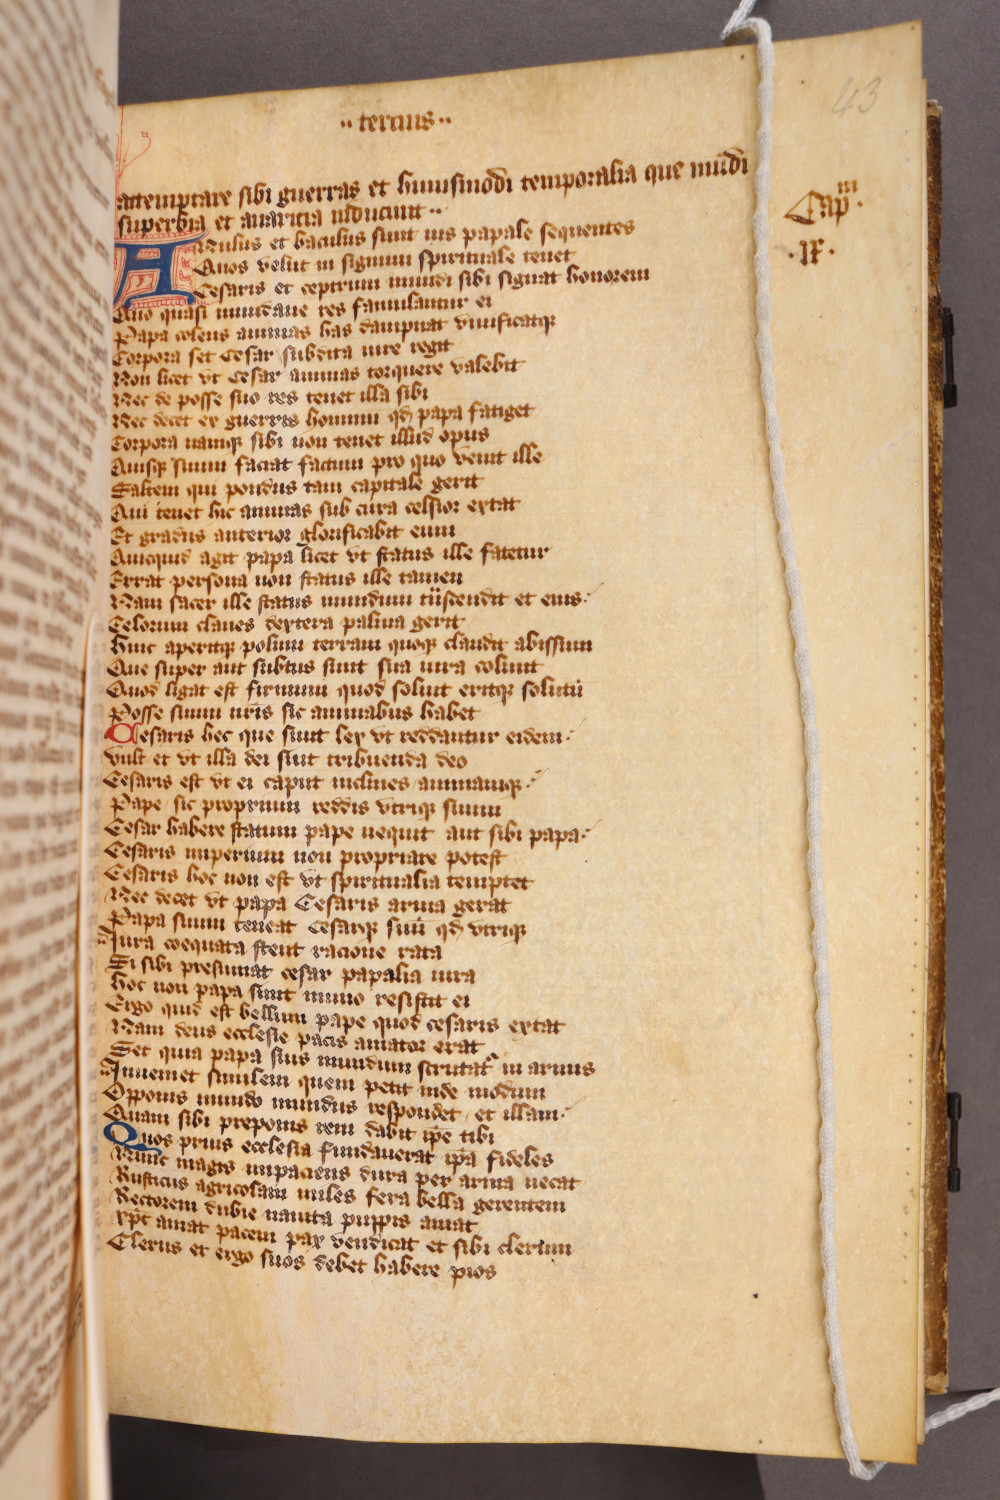 ·· tercius ··
43
attemptare sibi guerras et huiusmodi temporalia que mūdi
superbia et auaricia inducunt ··
Capᵐ
·ix·
ANulus et baculus sunt ius papale sequentes
Quos velut in signum spirituale tenet
Cesaris et ceptrum mundi sibi signat honorem
Quo quasi mundane res famulantur ei
Papa colens animas has dampnat viuificatqꝫ
Corpora set Cesar subdita iure regit
Non licet vt Cesar animas torquere valebit
Nec de posse suo res tenet illa sibi
Nec decet ex guerris hominum qd papa fatiget
Corpora namqꝫ sibi non tenet illud opus
Quisqꝫ suum faciat factum pro quo venit ille
Saltem qui pondus tam capitale gerit
Qui tenet hic animas sub cura celsior extat
Et gradus anterior glorificabit eum
Quicquid agit papa licet vt status ille fatetur
Errat persona non status ille tamen
Nam sacer ille status mundum trāscendit et eius
Celorum claues dextera palma gerit
Hinc aperitqꝫ polum terram quoqꝫ claudit abissum
Que super aut subtus sunt sua iura colunt
Quod ligat est firmum quod soluit eritqꝫ solutū
Posse suum uris sic animabus habet
Cesaris hec que sunt lex vt reddantur eidem
vult et vt illa dei sint tribuenda deo
Cesaris est vt ei caput inclines animamqꝫ
Pape sic proprium reddis vtriqꝫ suum
Cesar habere statum pape nequit aut sibi papa
Cesaris imperium non propriare potest
Cesaris hoc non est vt spiritualia temptet
Nec decet vt papa Cesaris arma gerat
Papa suum teneat Cesarqꝫ suū qd vtriqꝫ
Iura coequata stent racione rata
Si sibi presumat cesar papalia iura
Hoc non papa sinit immo resistit ei
Ergo quid est bellum pape quod cesaris extat
Nam deus ecclesie pacis amator erat
Set quia papa suis mundum scrutatᷣ in armis
Inueniet similem quem petit inde modum
Opponis mundo mundus respondet et illam
Quam sibi preponis rem dabit ip̄e tibi
Quos prius ecclesia fundauerat ip̄a fideles
Nunc magis impaciens dura per arma necat
Rusticus agricolam miles fera bella gerentem
Rectorem dubie nauita puppis amat
xp̄c amat pacem pax vendicat et sibi clerum
Clerus et ergo suos debet habere pios